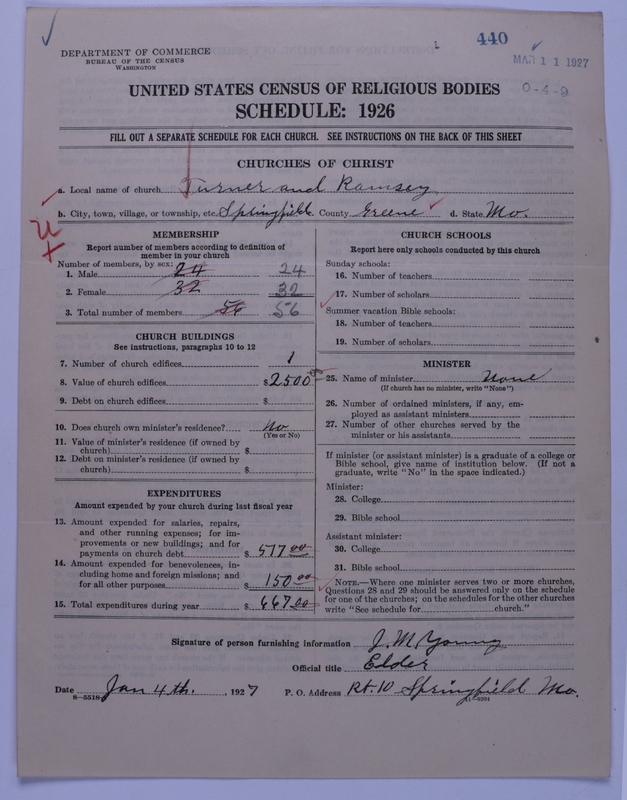 440
MAR 11 1927
0-4-9
DEPARTMENT OF COMMERCE
BUREAU OF THE CENSUS
WASHINGTON
UNITED STATES CENSUS OF RELIGIOUS BODIES
SCHEDULE: 1926
FILL OUT A SEPARATE SCHEDULE FOR EACH CHURCH. SEE INSTRUCTIONS ON THE BACK OF THIS SHEET
CHURCHES OF CHRIST
a. Local name of church Turner and Ramsey
b. City, town, village, or township, etc. Springfield County Greene d. State Mo.
MEMBERSHIP
Report number of members according to definition of
member in your church
Number of members, by sex:
1. Male 24 24
2. Female 32 32
3. Total number of members 56 56
CHURCH BUILDINGS
See instructions, paragraphs 10 to 12
7. Number of church edifices 1
8. Value of church edifices $2500
9. Debt on church edifices $
10. Does church own minister's residence? No
(Yes or No)
11. Value of minister's residence (if owned by
church) $
12. Debt on minister's residence (if owned by
church) $
EXPENDITURES
Amount expended by your church during last fiscal year
13. Amount expended for salaries, repairs,
and other running expenses; for im-
provements or new buildings; and for
payments on church debt $ 517 00
14. Amount expended for benevolences, in-
cluding home and foreign missions; and
for all other purposes $ 150 00
15. Total expenditures during year $ 667 00
CHURCH SCHOOLS
Report here only schools conducted by this church
Sunday schools:
16. Number of teachers
17. Number of scholars
Summer vacation Bible schools:
18. Number of teachers
19. Number of scholars
MINISTER
25. Name of minister None
(If church has no minister, write "None")
26. Number of ordained ministers, if any, em-
ployed as assistant ministers
27. Number of other churches served by the
minister or his assistants
If minister (or assistant minister) is a graduate of a college or
Bible school, give name of institution below. (If not a
graduate, write "No" in the space indicated.)
Minister:
28. College
29. Bible school
Assistant minister:
30. College
31. Bible school
NOTE.—Where one minister serves two or more churches,
Questions 28 and 29 should be answered only on the schedule
for one of the churches; on the schedules for the other churches
write "See schedule for church."
Signature of person furnishing information J. M. Young
Official title Elder
Date Jan 4th. , 1927 P. O. Address Rt. 10 Springfield Mo.
8—5518